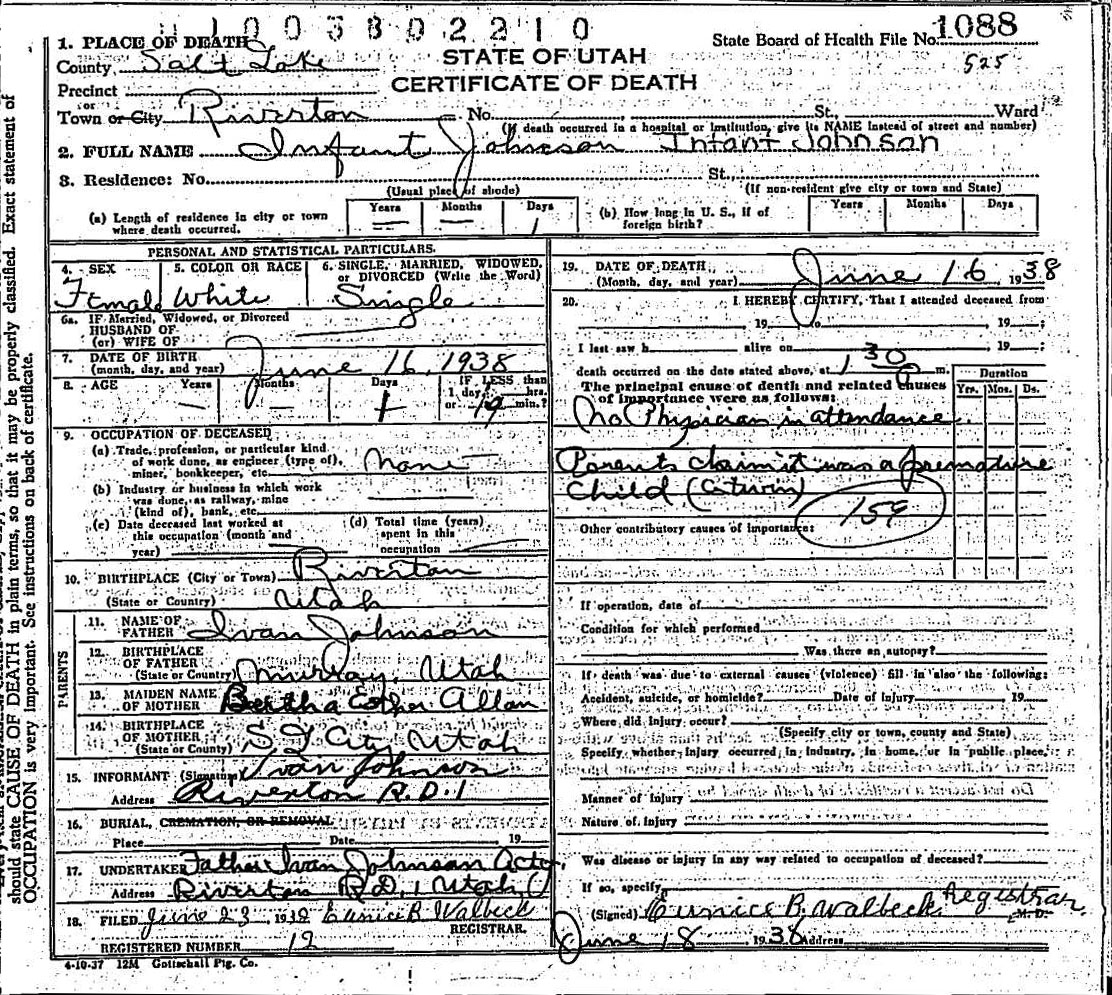 1003802210
1. PLACE OF DEATH
County Salt Lake
STATE OF UTAH
CERTIFICATE OF DEATH
State Board of Health File No. 1088
525
Precinct
or
Town or City Riverton No. St., Ward
(If death occurred in a hospital or institution, give its NAME instead of street and number)
2. FULL NAME Infant Johnson Infant Johnson
3. Residence: No. St.,
(Usual place of abode) (If non-resident give city or town and State)
(a) Length of residence in city or town where death occurred. Years — Months — Days 1
(b) How long in U. S., if of foreign birth? Years Months Days
PERSONAL AND STATISTICAL PARTICULARS.
4. SEX Female
5. COLOR OR RACE White
6. SINGLE, MARRIED, WIDOWED, or DIVORCED (Write the Word) Single
6a. If Married, Widowed, or Divorced
HUSBAND OF
(or) WIFE OF
7. DATE OF BIRTH
(month, day, and year) June 16, 1938
8. AGE Years — Months — Days 1 IF LESS than 1 day, hrs. or 19 min.?
9. OCCUPATION OF DECEASED
(a) Trade, profession, or particular kind of work done, as engineer (type of), miner, bookkeeper, etc. none
(b) Industry or business in which work was done, as railway, mine (kind of), bank, etc.
(c) Date deceased last worked at this occupation (month and year)
(d) Total time (years) spent in this occupation
10. BIRTHPLACE (City or Town) Riverton
(State or Country) Utah
PARENTS
11. NAME OF FATHER Ivan Johnson
12. BIRTHPLACE OF FATHER
(State or County) Murray, Utah
13. MAIDEN NAME OF MOTHER Bertha Esther Allan
14. BIRTHPLACE OF MOTHER
(State or County) S L City, Utah
15. INFORMANT (Signature) Ivan Johnson
Address Riverton R.D.1
16. BURIAL, CREMATION, OR REMOVAL
Place Date 19
17. UNDERTAKER Father Ivan Johnson Acto
Address Riverton R.D.1 Utah
18. FILED June 23, 1938 Eunice B. Walbeck
REGISTRAR.
REGISTERED NUMBER 12
4-10-37 12M Gottschall Ptg. Co.
19. DATE OF DEATH
(Month, day, and year) June 16 1938
20. I HEREBY CERTIFY, That I attended deceased from
19 to 19 ;
I last saw h alive on 19 ;
death occurred on the date stated above, at 1 30 P m.
The principal cause of death and related causes of importance were as follows:
Duration
Yrs. Mos. Ds.
No Physician in attendance.
Parents claim it was a premature
child (a twin)
159
Other contributory causes of importance:
If operation, date of
Condition for which performed
Was there an autopsy?
If death was due to external causes (violence) fill in also the following:
Accident, suicide, or homicide? Date of Injury 19
Where did injury occur?
(Specify city or town, county and State)
Specify whether injury occurred in industry, in home, or in public place.
Manner of injury
Nature of injury
Was disease or injury in any way related to occupation of deceased?
If so, specify
(Signed) Eunice B. Walbeck Registrar M. D.
June 18 1938 Address
should state CAUSE OF DEATH in plain terms, so that it may be properly classified. Exact statement of
OCCUPATION is very important. See instructions on back of certificate.